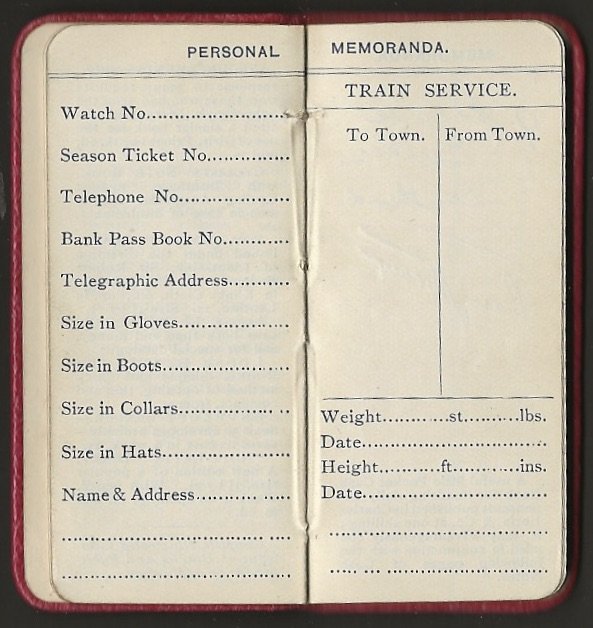 PERSONAL MEMORANDA.
Watch No.
Season Ticket No.
Telephone No.
Bank Pass Book No.
Telegraphic Address
Size in Gloves
Size in Boots
Size in Collars
Size in Hats
Name & Address
TRAIN SERVICE.
To Town. From Town.
Weight............st..........lbs.
Date
Height...........ft............ins.
Date